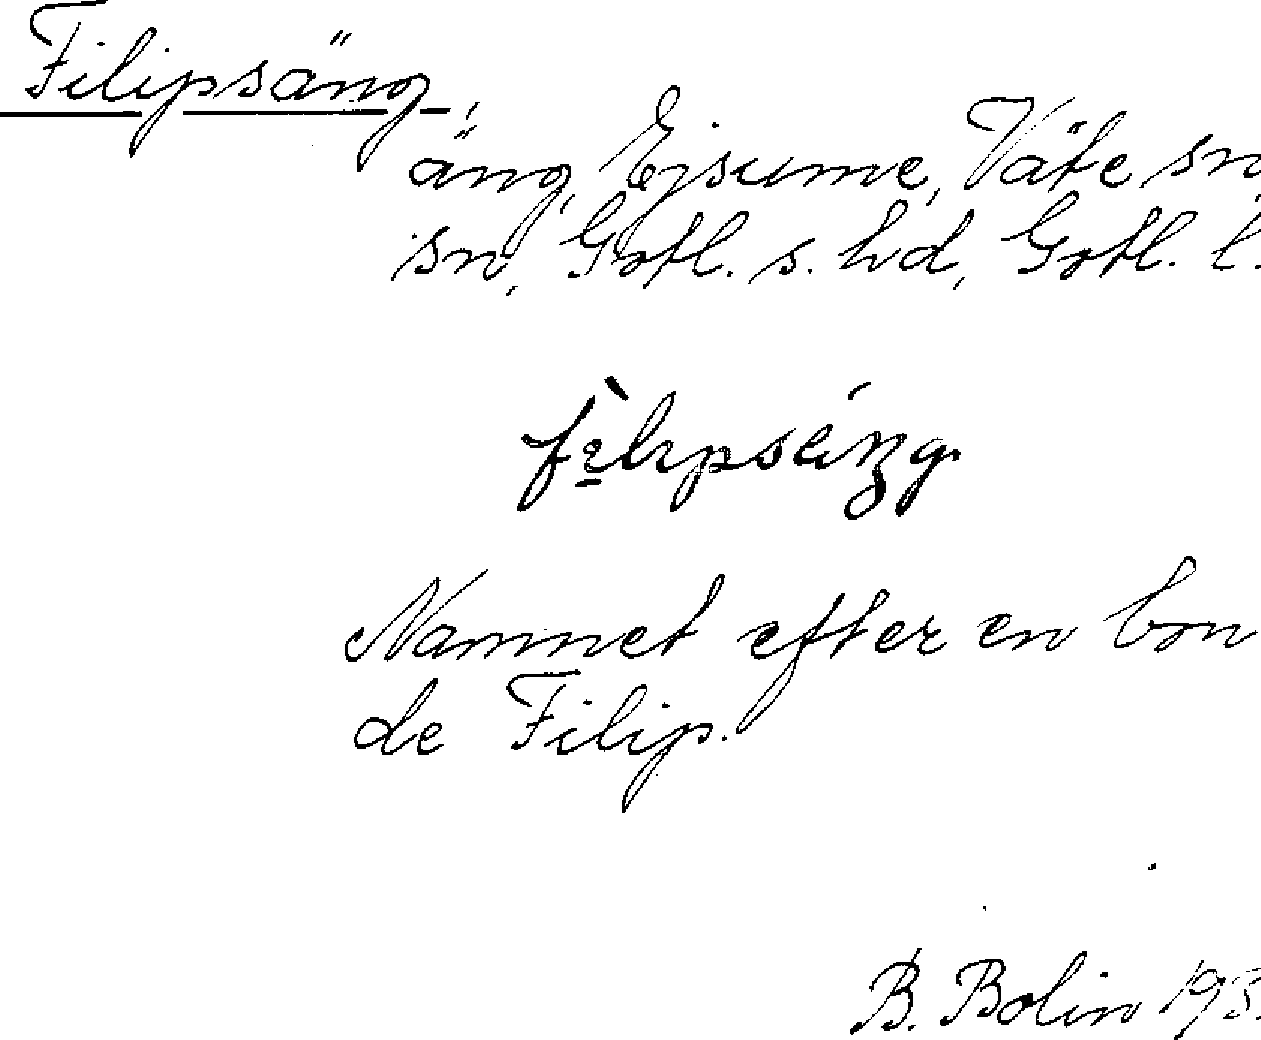 Filipsäng,
äng, Ejsume, Väte sn,
sn, Gotl. s. hd, Gotl. l.
Namnet efter en bon
de Filip.
B. Bolin 193